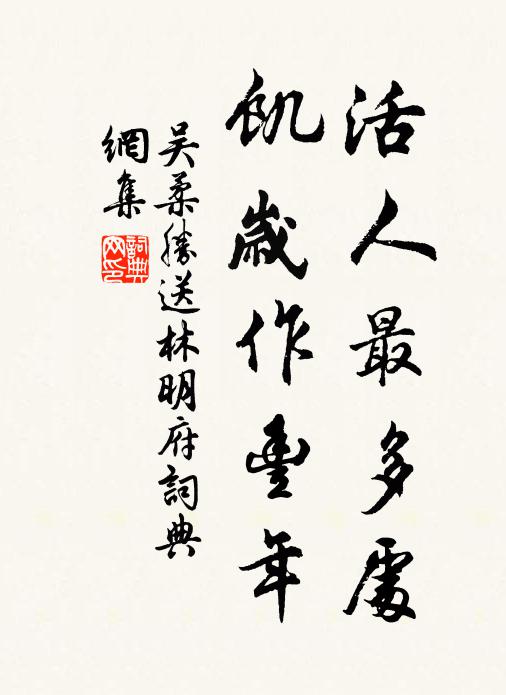 活人最多處
飢歲作豐年
吴柔勝送林明府詞典
網集
詞典
网印